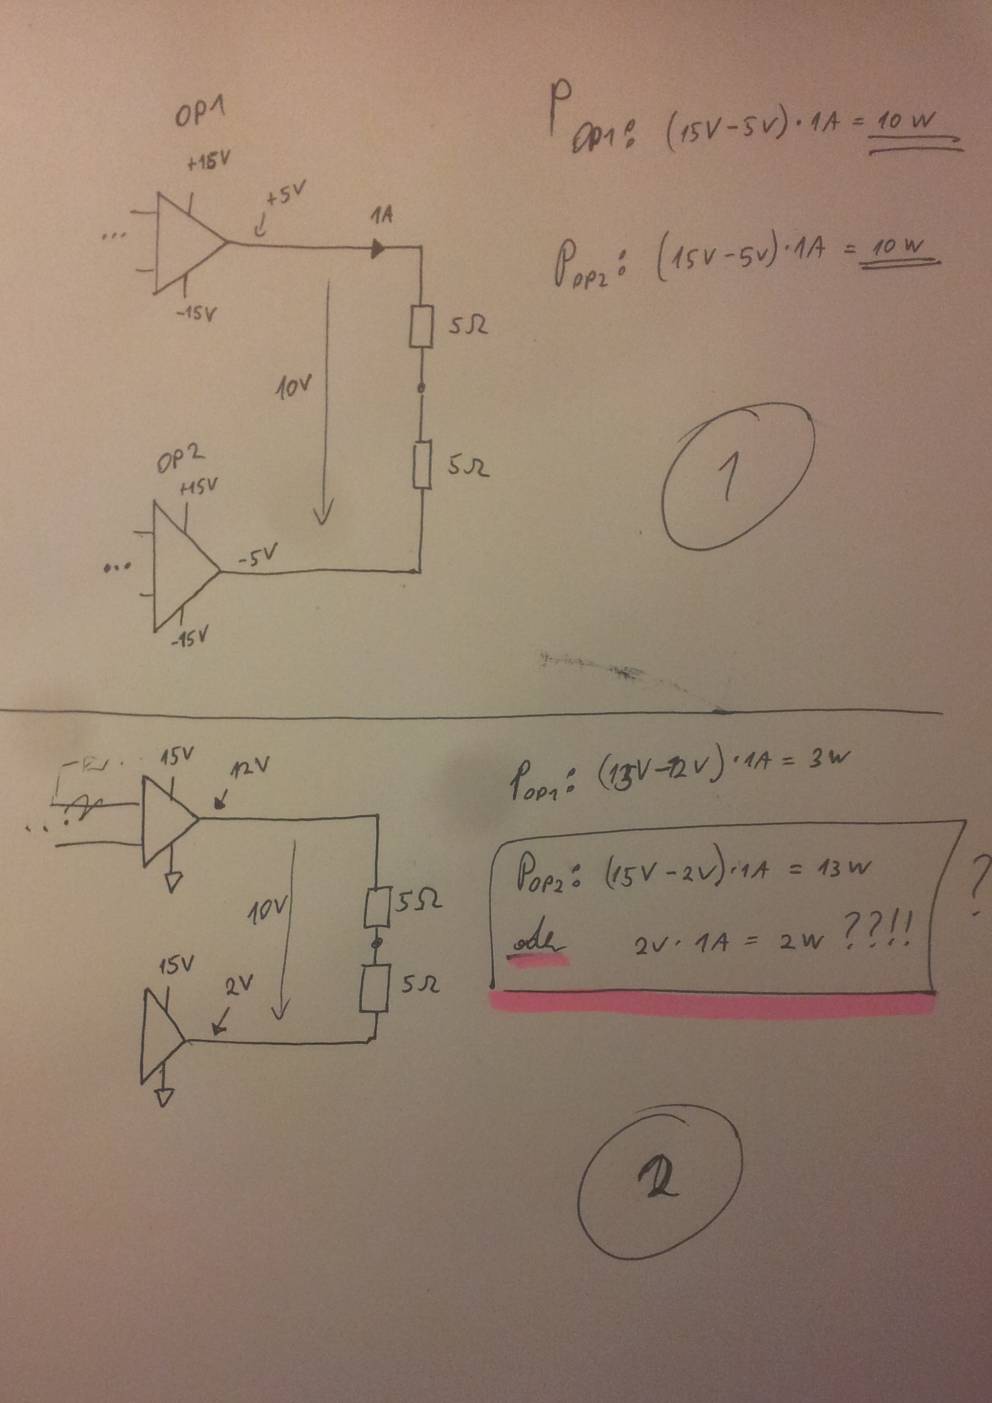 OP1
+15V
+5V
1A
...
-15V
5Ω
10V
5Ω
OP2
+15V
...
-5V
-15V
P OP1: (15V-5V)·1A = 10W
P OP2: (15V-5V)·1A = 10W
1
15V
12V
5Ω
10V
5Ω
15V
2V
P OP1: (15V-12V)·1A = 3W
P OP2: (15V-2V)·1A = 13W
oder 2V·1A = 2W ??!!
?
2